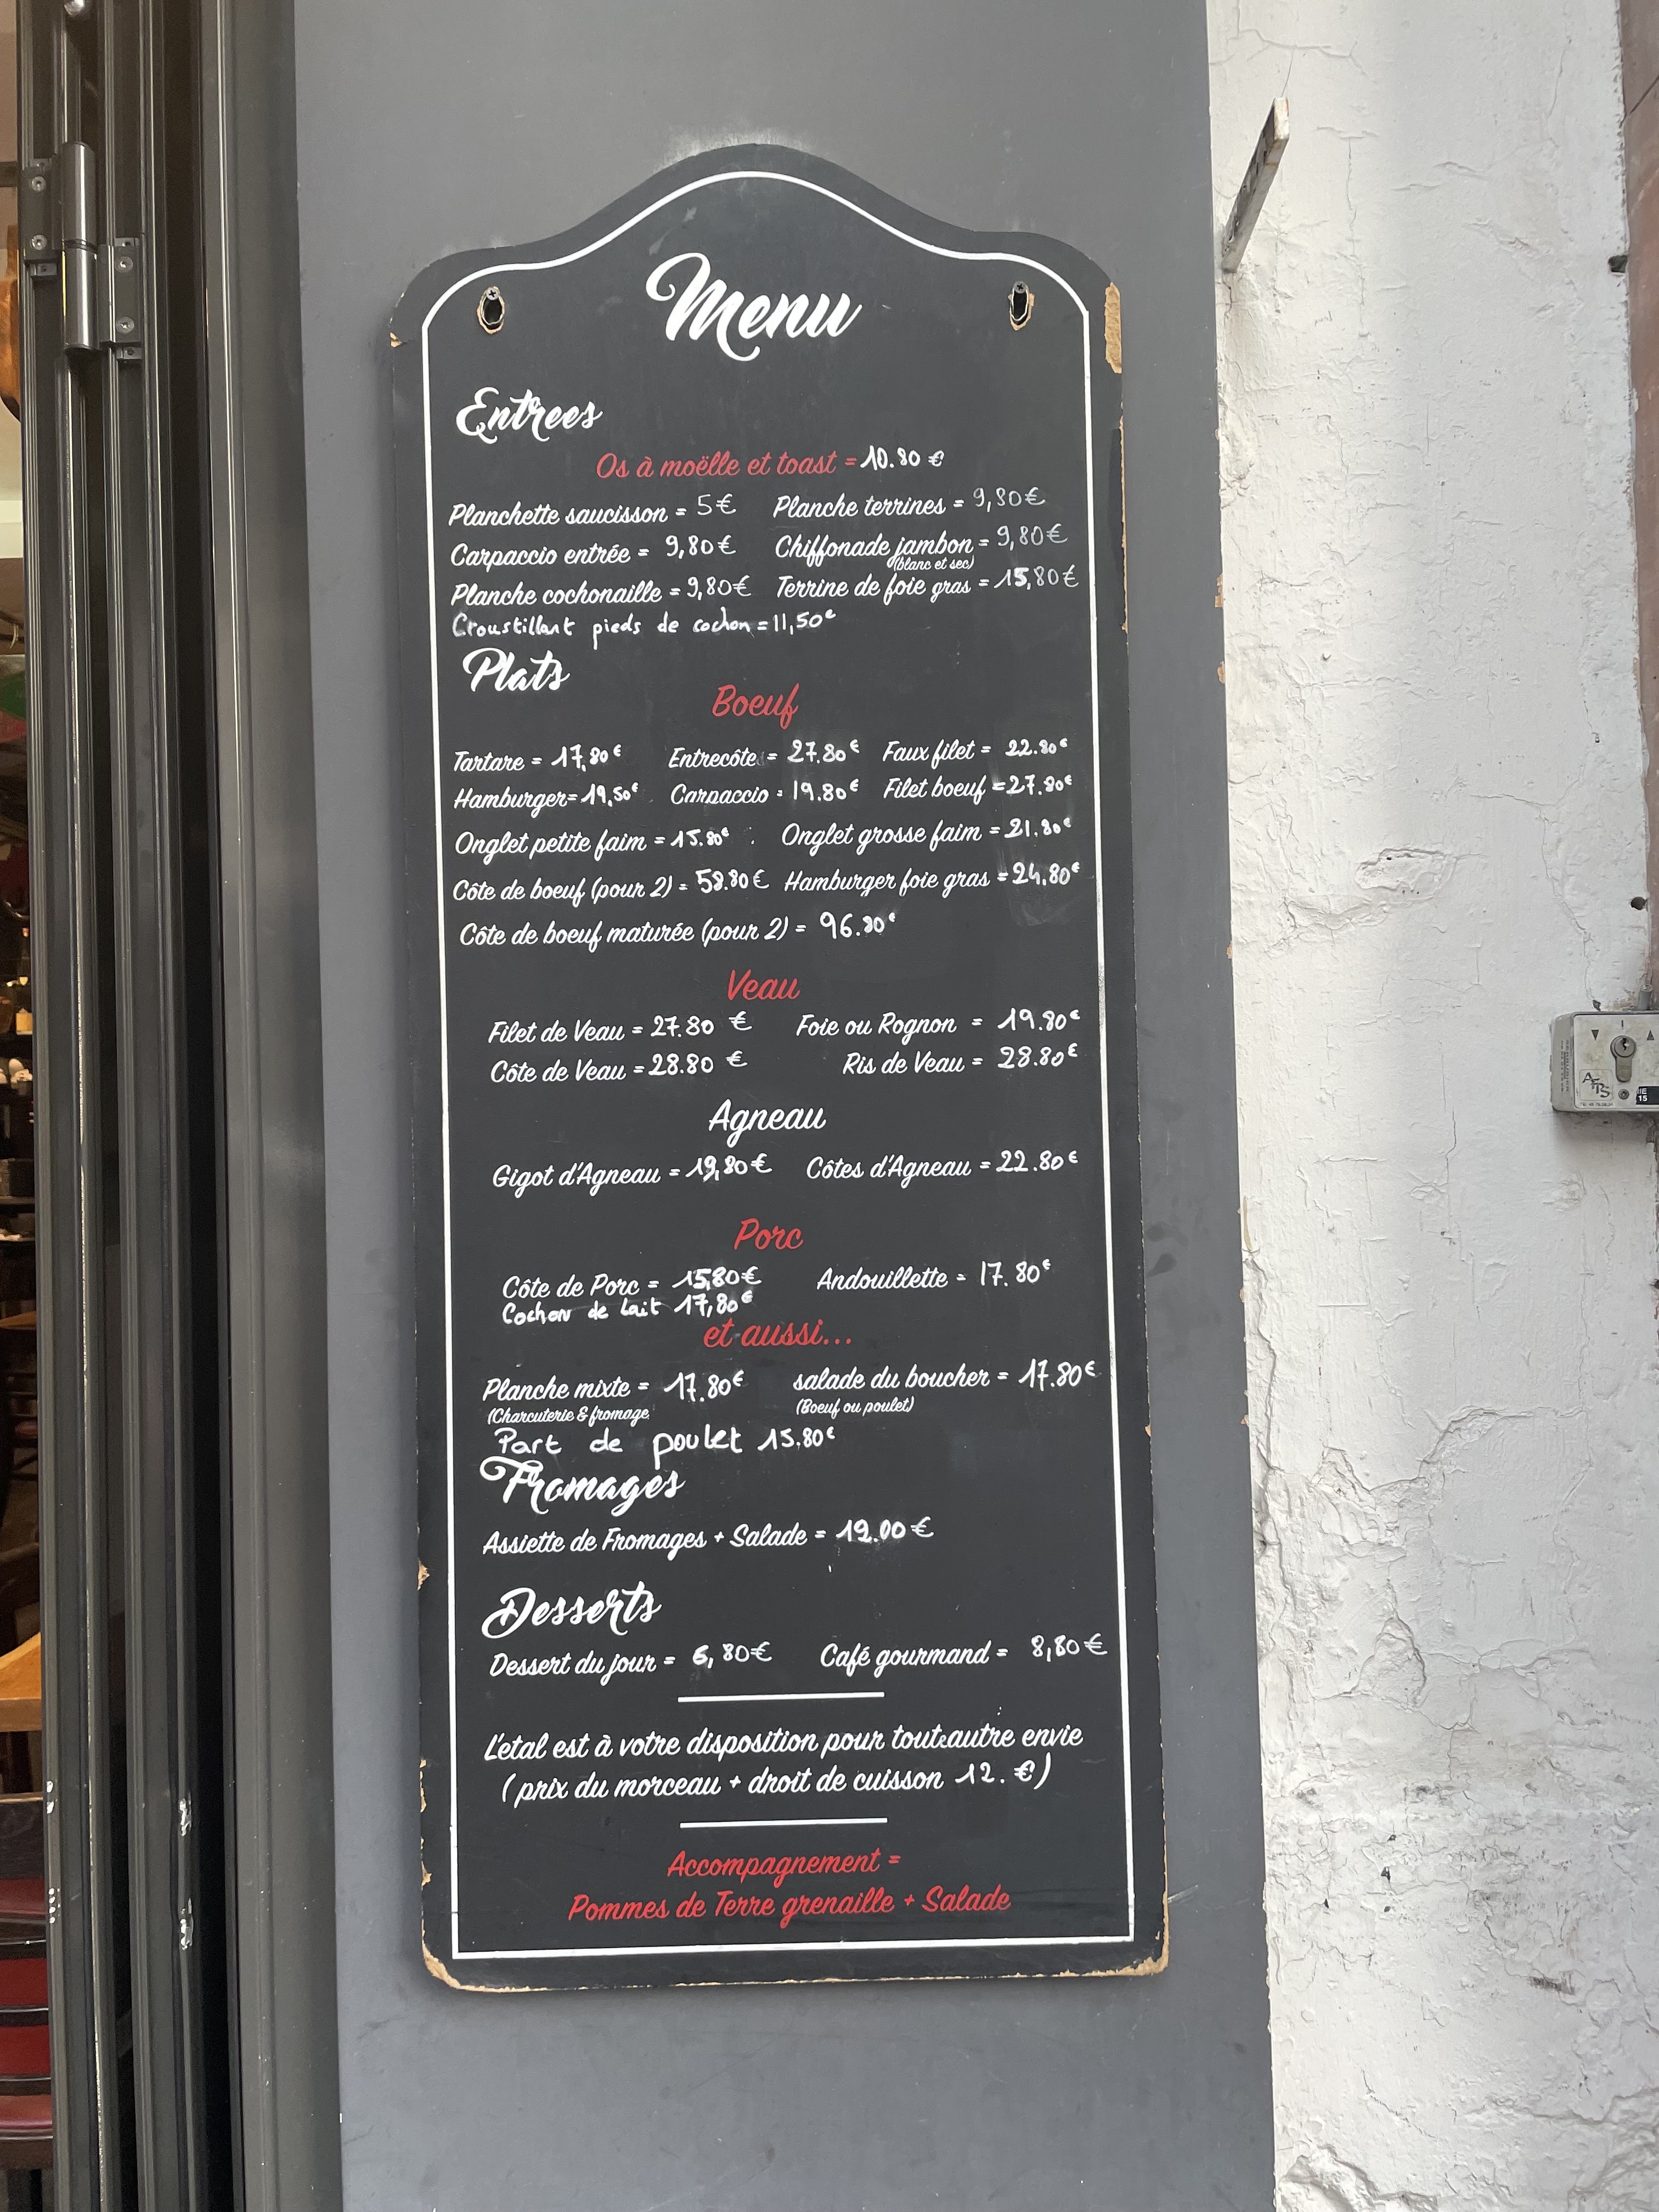 Menu
Entrees
Os à moëlle et toast = 10.80 €
Planchette saucisson = 5€ Planche terrines = 9,80€
Carpaccio entrée = 9,80€ Chiffonade jambon = 9,80€
(blanc et sec)
Planche cochonaille = 9,80€ Terrine de foie gras = 15,80€
Croustillant pieds de cochon = 11,50€
Plats
Boeuf
Tartare = 17,80€ Entrecôte = 27.80€ Faux filet = 22.80€
Hamburger = 19,50€ Carpaccio = 19.80€ Filet boeuf = 27.80€
Onglet petite faim = 15.80€ Onglet grosse faim = 21.80€
Côte de boeuf (pour 2) = 58.80€ Hamburger foie gras = 24,80€
Côte de boeuf maturée (pour 2) = 96.80€
Veau
Filet de Veau = 27.80 € Foie ou Rognon = 19.80€
Côte de Veau = 28.80 € Ris de Veau = 28.80€
Agneau
Gigot d'Agneau = 19,80€ Côtes d'Agneau = 22.80€
Porc
Côte de Porc = 15,80€ Andouillette = 17.80€
Cochon de lait 17,80€
et aussi...
Planche mixte = 17.80€ salade du boucher = 17.80€
(Charcuterie & fromage (Boeuf ou poulet)
Part de poulet 15.80€
Fromages
Assiette de Fromages + Salade = 12.00 €
Desserts
Dessert du jour = 6,80€ Café gourmand = 8,80€
L'etal est à votre disposition pour tout autre envie
(prix du morceau + droit de cuisson 12. €)
Accompagnement =
Pommes de Terre grenaille + Salade